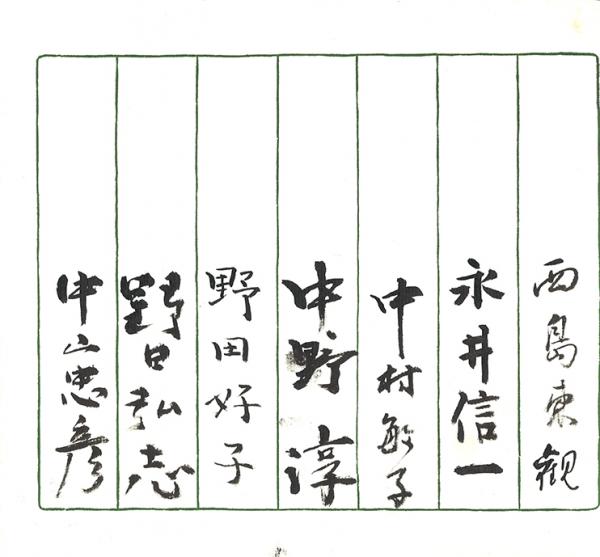 西島東観
永井信一
中村敏子
中野淳
野田好子
野口弘志
中山忠彦